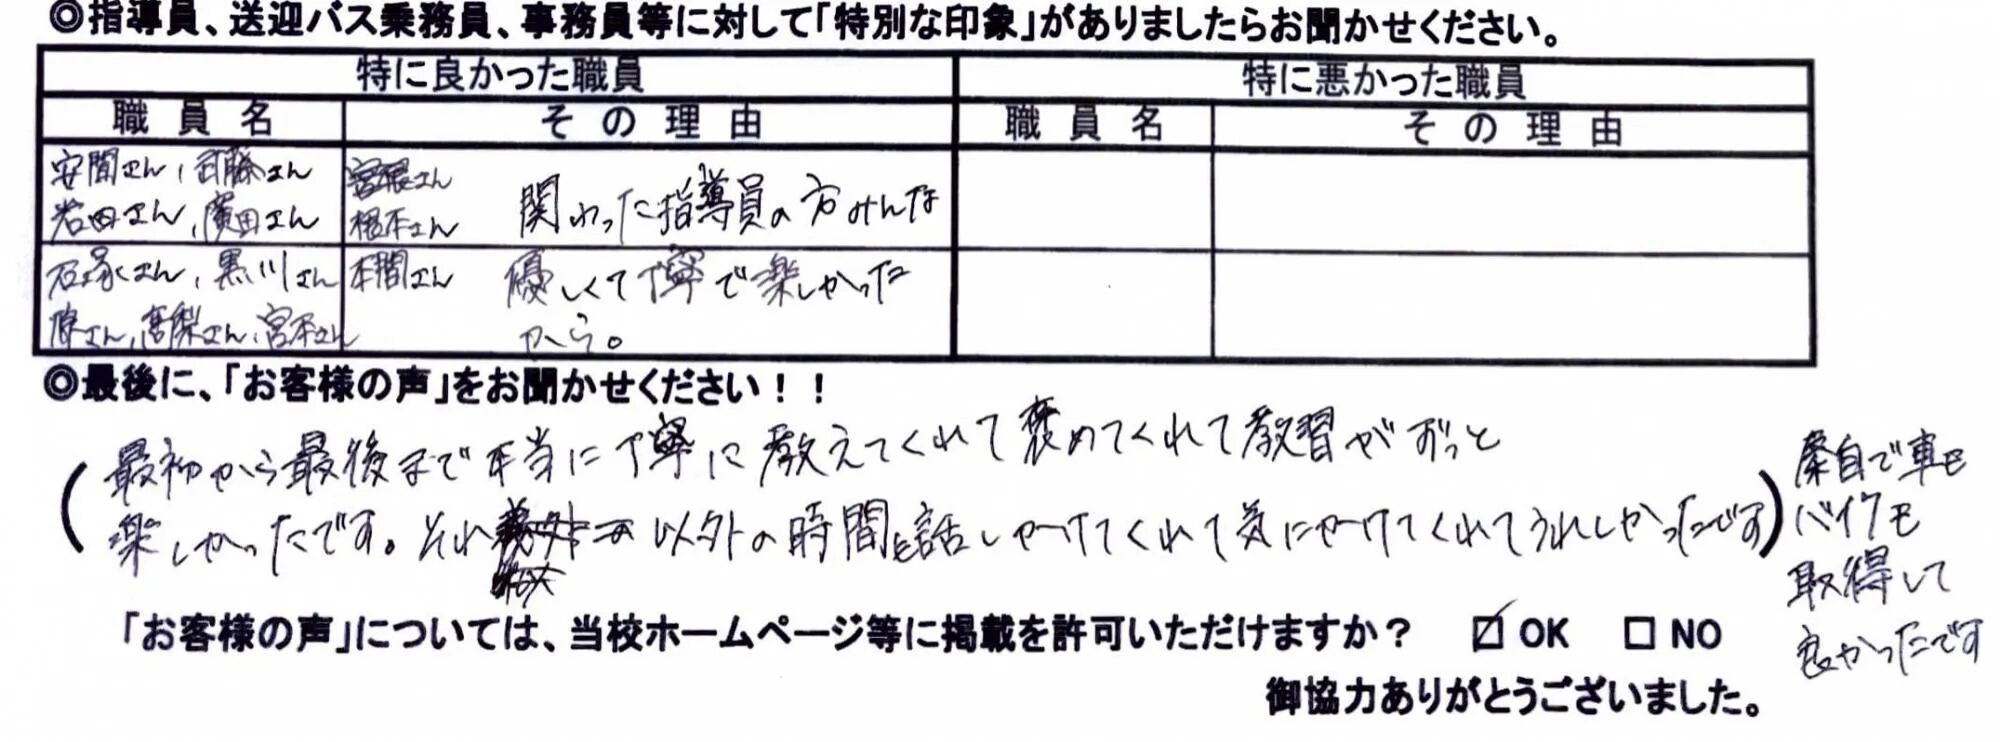 ◎指導員、送迎バス乗務員、事務員等に対して「特別な印象」がありましたらお聞かせください。
特に良かった職員 特に悪かった職員
職員名 その理由 職員名 その理由
安間さん、武藤さん 宮根さん 関わった指導員の方みんな
岩田さん、廣田さん 根本さん
石塚さん、黒川さん 本間さん 優しくて丁寧で楽しかった
原さん、髙梨さん、宮本さん から。
◎最後に、「お客様の声」をお聞かせください！！
最初から最後まで本当に丁寧に教えてくれて褒めてくれて教習がずっと
楽しかったです。それ以外の時間も話しかけてくれて気にかけてくれてうれしかったです
自で車も
バイクも
取得して
良かったです
「お客様の声」については、当校ホームページ等に掲載を許可いただけますか？ ☑ OK □ NO
御協力ありがとうございました。